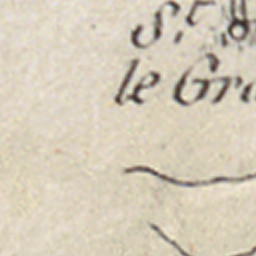 S.t
le Gra